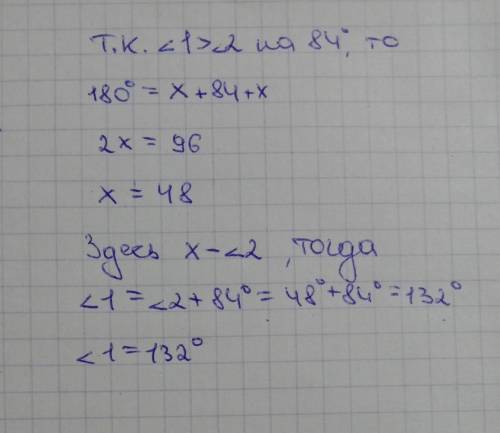 Т.К. <1><2 на 84°, то
180° = x + 84 + x
2x = 96
x = 48
Здесь x - <2, тогда
<1 = <2 + 84° = 48° + 84° = 132°
<1 = 132°